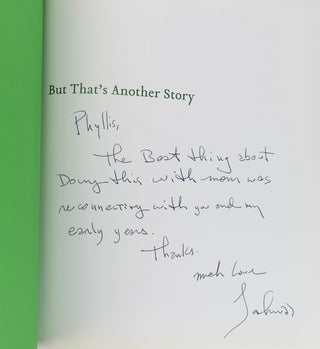 But That's Another Story
Phyllis,
The Best thing about
Doing this with mom was
reconnecting with you and my
early years.
Thanks.
much love